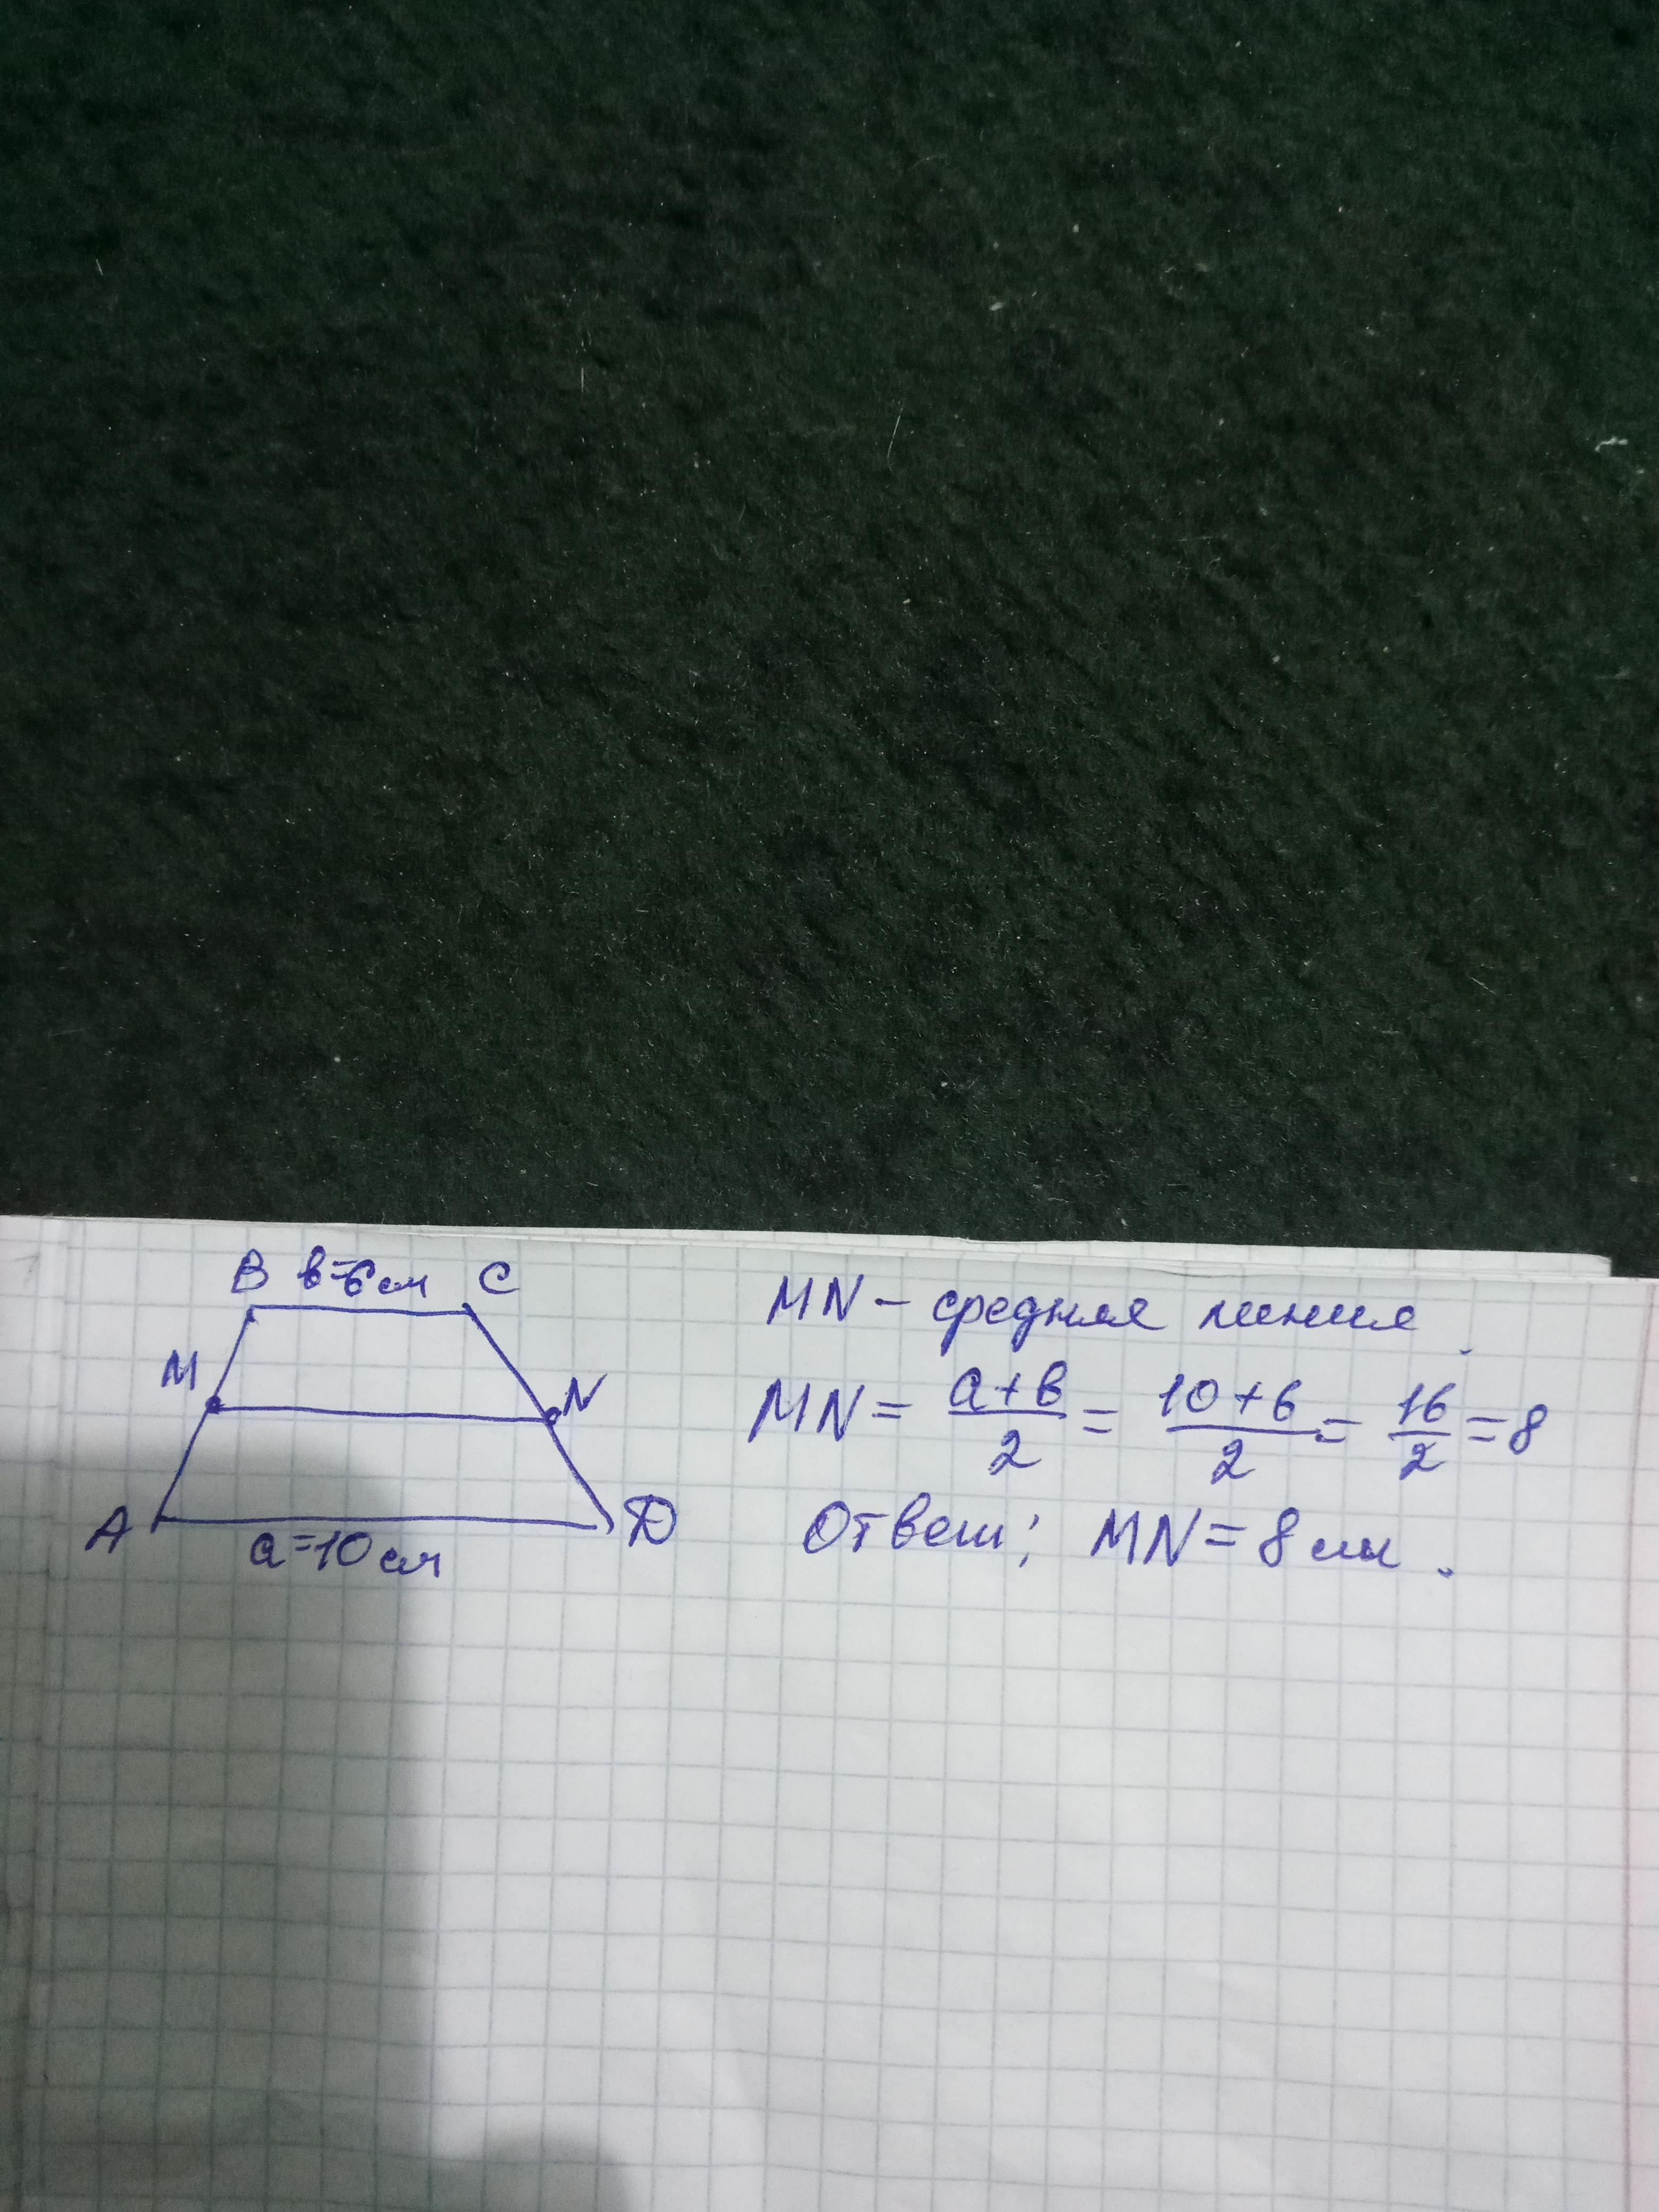 B в=6см C
M
N
A
D
a=10см
MN – средняя линия.
MN = a+в/2 = 10+6/2 = 16/2 = 8
Ответ: MN = 8 см.